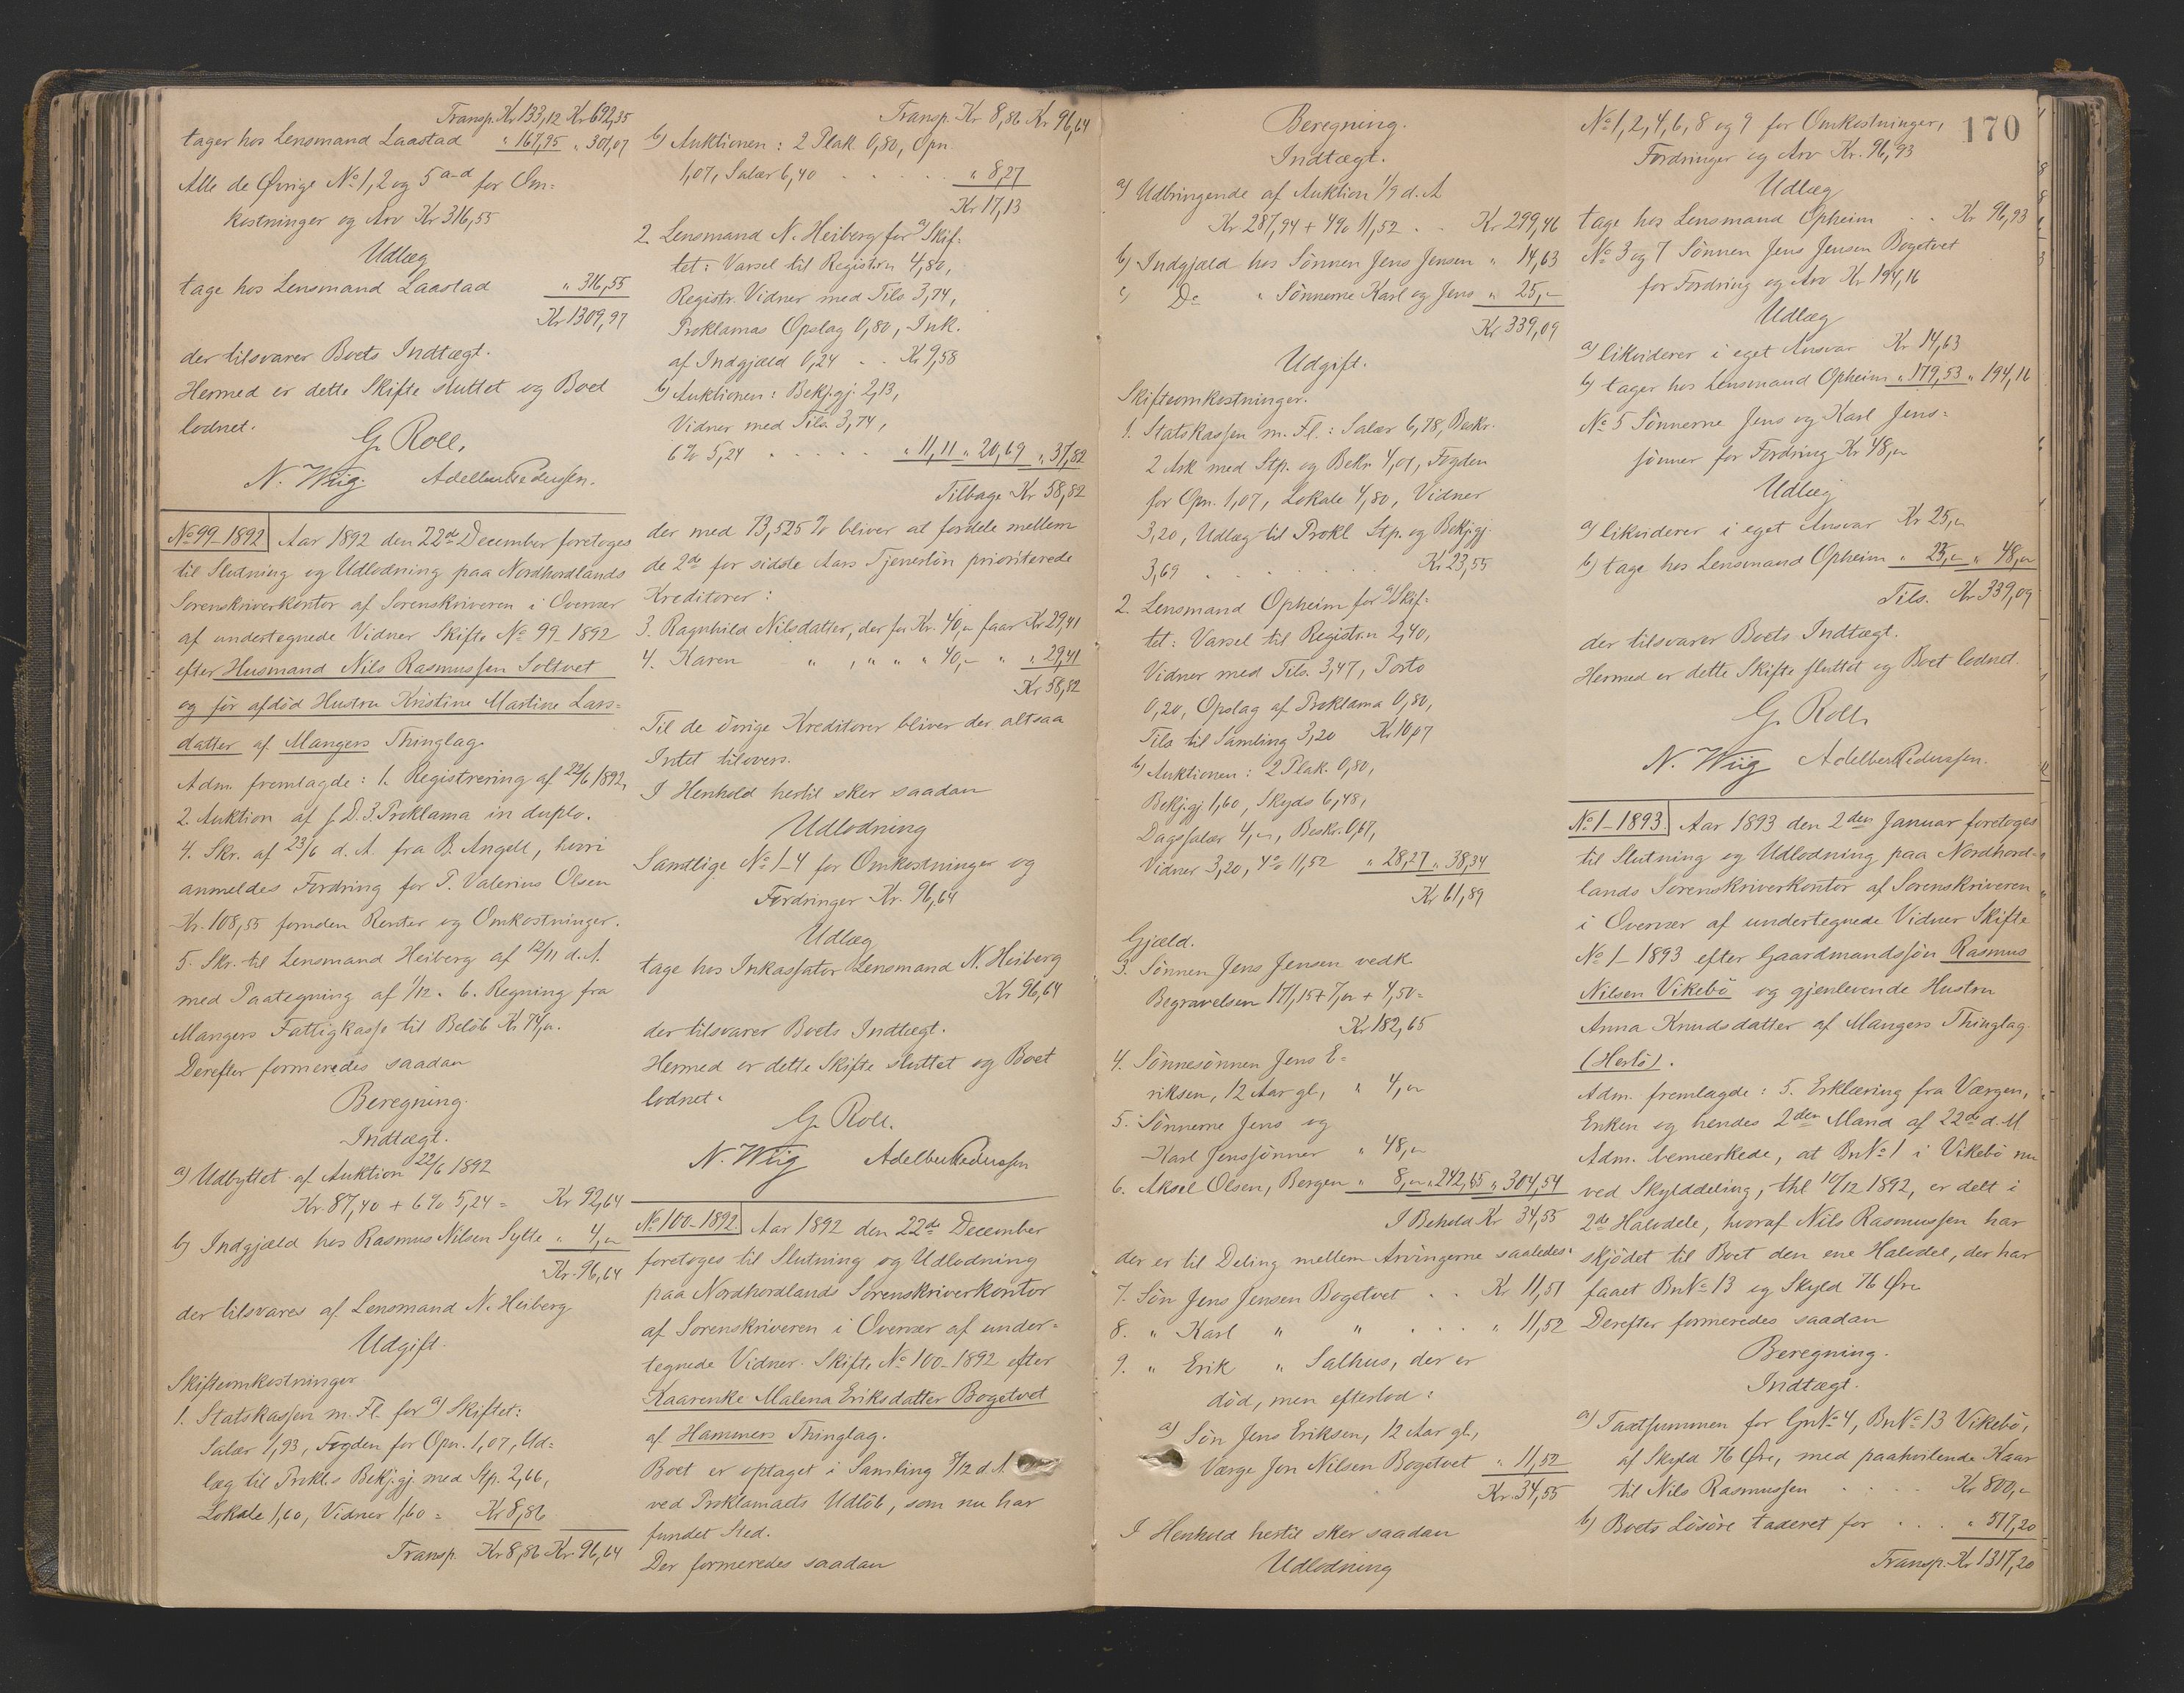 Transp. Kr 133,12 Kr 692,35
tager hos Lensmand Laastad " 167,95 " 301,07
Alle de Øvrige No 1, 2 og 5 a-d for Om=
kostninger og Arv Kr 316,55
Udlæg
tage hos Lensmand Laastad " 316,55
Kr 1309,97
der tilsvarer Boets Indtægt.
Hermed er dette Skifte sluttet og Boet
lodnet.
G. Roll.
N. Wiig. Adelbert Pedersen.
No 99-1892 Aar 1892 den 22de December foretoges
til Slutning og Udlodning paa Nordhordlands
Sorenskriverkontor af Sorenskriveren i Overvær
af undertegnede Vidner Skifte No 99 1892
efter Husmand Nils Rasmussen Soltvet
og før afdød Hustru Kristine Martine Lars=
datter af Mangers Thinglag.
Adm. fremlagde: 1. Registrering af 22/6 1892,
2. Auktion af s. D. 3. Proklama in duplo.
4. Skr. af 23/6 d. A. fra B. Angell, hvori
anmeldes Fordring for P. Valerius Olsen
Kr. 108,55 foruden Renter og Omkostninger.
5. Skr. til Lensmand Heiberg af 12/11 d. A.
med Paategning af 1/12. 6. Regning fra
Mangers Fattigkasse til Beløb Kr 74,-.
Derefter formeredes saadan
Beregning.
Indtægt.
a) Udbyttet af Auktion 22/6 1892
Kr. 87,40 + 6% 5,24 = Kr 92,64
b) Indgjæld hos Rasmus Nilsen Sylte " 4,-
Kr. 96,64
der tilsvares af Lensmand N. Heiberg
Udgift.
Skifteomkostninger
1. Statskassen m. Fl. for a) Skiftet:
Salær 1,93, Fogden for Opn. 1,07, Ud=
læg til Prokl.s Bekj.gj. med Stp. 2,66,
Lokale 1,60, Vidner 1,60 = Kr 8,86
Transp. Kr 8,86 Kr. 96,64
Transp. Kr 8,86 Kr 96,64
b) Auktionen: 2 Plak. 0,80, Opn.
1,07, Salær 6,40 " 8,27
Kr 17,13
2. Lensmand N. Heiberg for a) Skif=
tet: Varsel til Registr.n 4,80,
Registr. Vidner med Tils 3,74,
Proklamas Opslag 0,80, Ink.
af Indgjæld 0,24 Kr 9,58
b) Auktionen: Bekj.gj. 2,13,
Vidner med Tils 3,74,
6% 5,24 " 11,11 " 20,69 " 37,82
Tilbage Kr 58,82
der med 73,525 % bliver at fordele mellem
de 2de for sidste Aars Tjenerløn prioriterede
Kreditorer:
3. Ragnhild Nilsdatter, der for Kr. 40,- faar Kr 29,41
4. Karen " , " " " 40,- " " 29,41
Kr 58,82
Til de øvrige Kreditorer bliver der altsaa
Intet tilovers.
I Henhold hertil sker saadan
Udlodning
Samtlige No 1-4 for Omkostninger og
Fordringer Kr. 96,64
Udlæg
tage hos Inkassator Lensmand N. Heiberg
Kr 96,64
der tilsvarer Boets Indtægt.
Hermed er dette Skifte sluttet og Boet
lodnet.
G. Roll.
N. Wiig Adelbert Pedersen
No 100-1892 Aar 1892 den 22de December
foretoges til Slutning og Udlodning
paa Nordhordlands Sorenskriverkontor
af Sorenskriveren i Overvær af under=
tegnede Vidner. Skifte No 100-1892 efter
Kaarenke Malena Eriksdatter Bogetvet
af Hammers Thinglag.
Boet er optaget i Samling 3/12 d. A.
ved Proklamaets Udløb, som nu har
fundet Sted.
Der formeredes saadan
Beregning.
Indtægt.
a) Udbringende af Auktion 1/9 d. A
Kr 287,94 + 4% 11,52 Kr 299,46
b) Indgjæld hos Sønnen Jens Jensen " 14,63
c) Do " Sønnerne Karl og Jens " 25,-
Kr 339,09
Udgift.
Skifteomkostninger.
1. Statskassen m. Fl.: Salær 6,78, Beskr.
2 Ark med Stp. og Bekr. 4,01, Fogden
for Opn. 1,07, Lokale 4,80, Vidner
3,20, Udlæg til Prokl Stp. og Bekj.gj.
3,69 Kr 23,55
2. Lensmand Opheim for a) Skif=
tet: Varsel til Registr.n 2,40,
Vidner med Tils. 3,47, Porto
0,20, Opslag af Proklama 0,80,
Tils til Samling 3,20 Kr 10,07
b) Auktionen: 2 Plak. 0,80,
Bekj.gj 1,60, Skyds 6,48,
Dagssalær 4,-, Beskr. 0,67,
Vidner 3,20, 4% 11,52 " 28,27 " 38,34
Kr 61,89
Gjæld.
3. Sønnen Jens Jensen vedk
Begravelsen 171,15 + 7,- + 4,50 =
Kr 182,65
4. Sønnesønnen Jens E=
riksen, 12 Aar gl, " 4,-
5. Sønnerne Jens og
Karl Jenssønner " 48,-
6. Aksel Olsen, Bergen " 8,- " 242,65 " 304,54
I Behold Kr 34,55
der er til Deling mellem Arvingerne saaledes:
7. Søn Jens Jensen Bogetvet Kr 11,51
8. " Karl " " " 11,52
9. " Erik " Salhus, der er
død, men efterlod:
a) Søn Jens Eriksen, 12 Aar gl.,
Værge Jon Nilsen Bogetvet " 11,52
Kr. 34,55
I Henhold hertil sker saadan
Udlodning
170
No 1, 2, 4, 6, 8 og 9 for Omkostninger,
Fordringer og Arv Kr. 96,93
Udlæg
tage hos Lensmand Opheim Kr 96,93
No 3 og 7 Sønnen Jens Jensen Bogetvet
for Fordring og Arv Kr 194,16
Udlæg
a) likviderer i eget Ansvar Kr 14,63
b) tager hos Lensmand Opheim " 179,53 " 194,16
No 5 Sønnerne Jens og Karl Jens=
sønner for Fordring Kr 48,-
Udlæg
a) likviderer i eget Ansvar Kr 25,-
b) tage hos Lensmand Opheim " 23,- " 48,-
Tils. Kr 339,09
der tilsvarer Boets Indtægt.
Hermed er dette Skifte sluttet og Boet lodnet.
G. Roll.
N. Wiig Adelbert Pedersen.
No 1-1893. Aar 1893 den 2den Januar foretoges
til Slutning og Udlodning paa Nordhord-
lands Sorenskriverkontor af Sorenskriveren
i Overvær af undertegnede Vidner Skifte
No 1-1893 efter Gaardmandssøn Rasmus
Nilsen Vikebø og gjenlevende Hustru
Anna Knudsdatter af Mangers Thinglag.
(Herlø).
Adm. fremlagde: 5. Erklæring fra Værgen,
Enken og hendes 2den Mand af 22de d. M
Adm. bemærkede, at BrNo 1 i Vikebø nu
ved Skylddeling, thl 10/12 1892, er delt i
2de Halvdele, hvoraf Nils Rasmussen har
skjødet til Boet den ene Halvdel, der har
faaet BrNo 13 og Skyld 76 Øre
Derefter formeredes saadan
Beregning.
Indtægt.
a) Taxtsummen for GrNo 4, BrNo 13 Vikebø,
af Skyld 76 Øre, med paahvilende Kaar
til Nils Rasmussen Kr 800,-
b) Boets Løsøre taxeret for " 517,20
Transp. Kr 1317,20